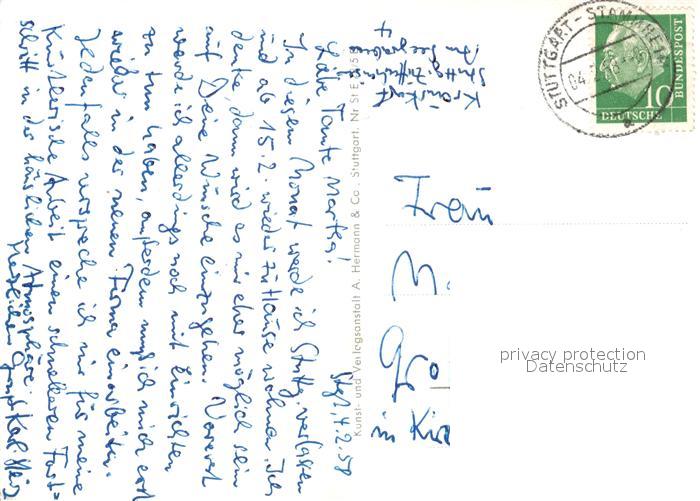 Stgt, 4.2.58
Liebe Tante Martha!
In diesem Monat werde ich Stuttg. verlassen
und ab 15.2. wieder zu Hause wohnen. Ich
denke, dann wird es mir eher möglich sein
auf Deine Wünsche einzugehen. Vorerst
werde ich allerdings noch mit Einrichten
zu tun haben, außerdem muß ich mich erst
wieder in der neuen Firma einarbeiten.
Jedenfalls verspreche ich mir für meine
künstlerische Arbeit einen schnelleren Fort-
schritt in der häuslichen Atmosphäre.
Herzlichen Gruß Karl Heinz
Stuttg. Zuffenhausen
Kunst- und Verlagsanstalt A. Hermann & Co., Stuttgart. Nr St E
STUTTGART - STAMMHEIM
04.2.
a
10
DEUTSCHE
BUNDESPOST
Frau
M.
in
privacy protection
Datenschutz